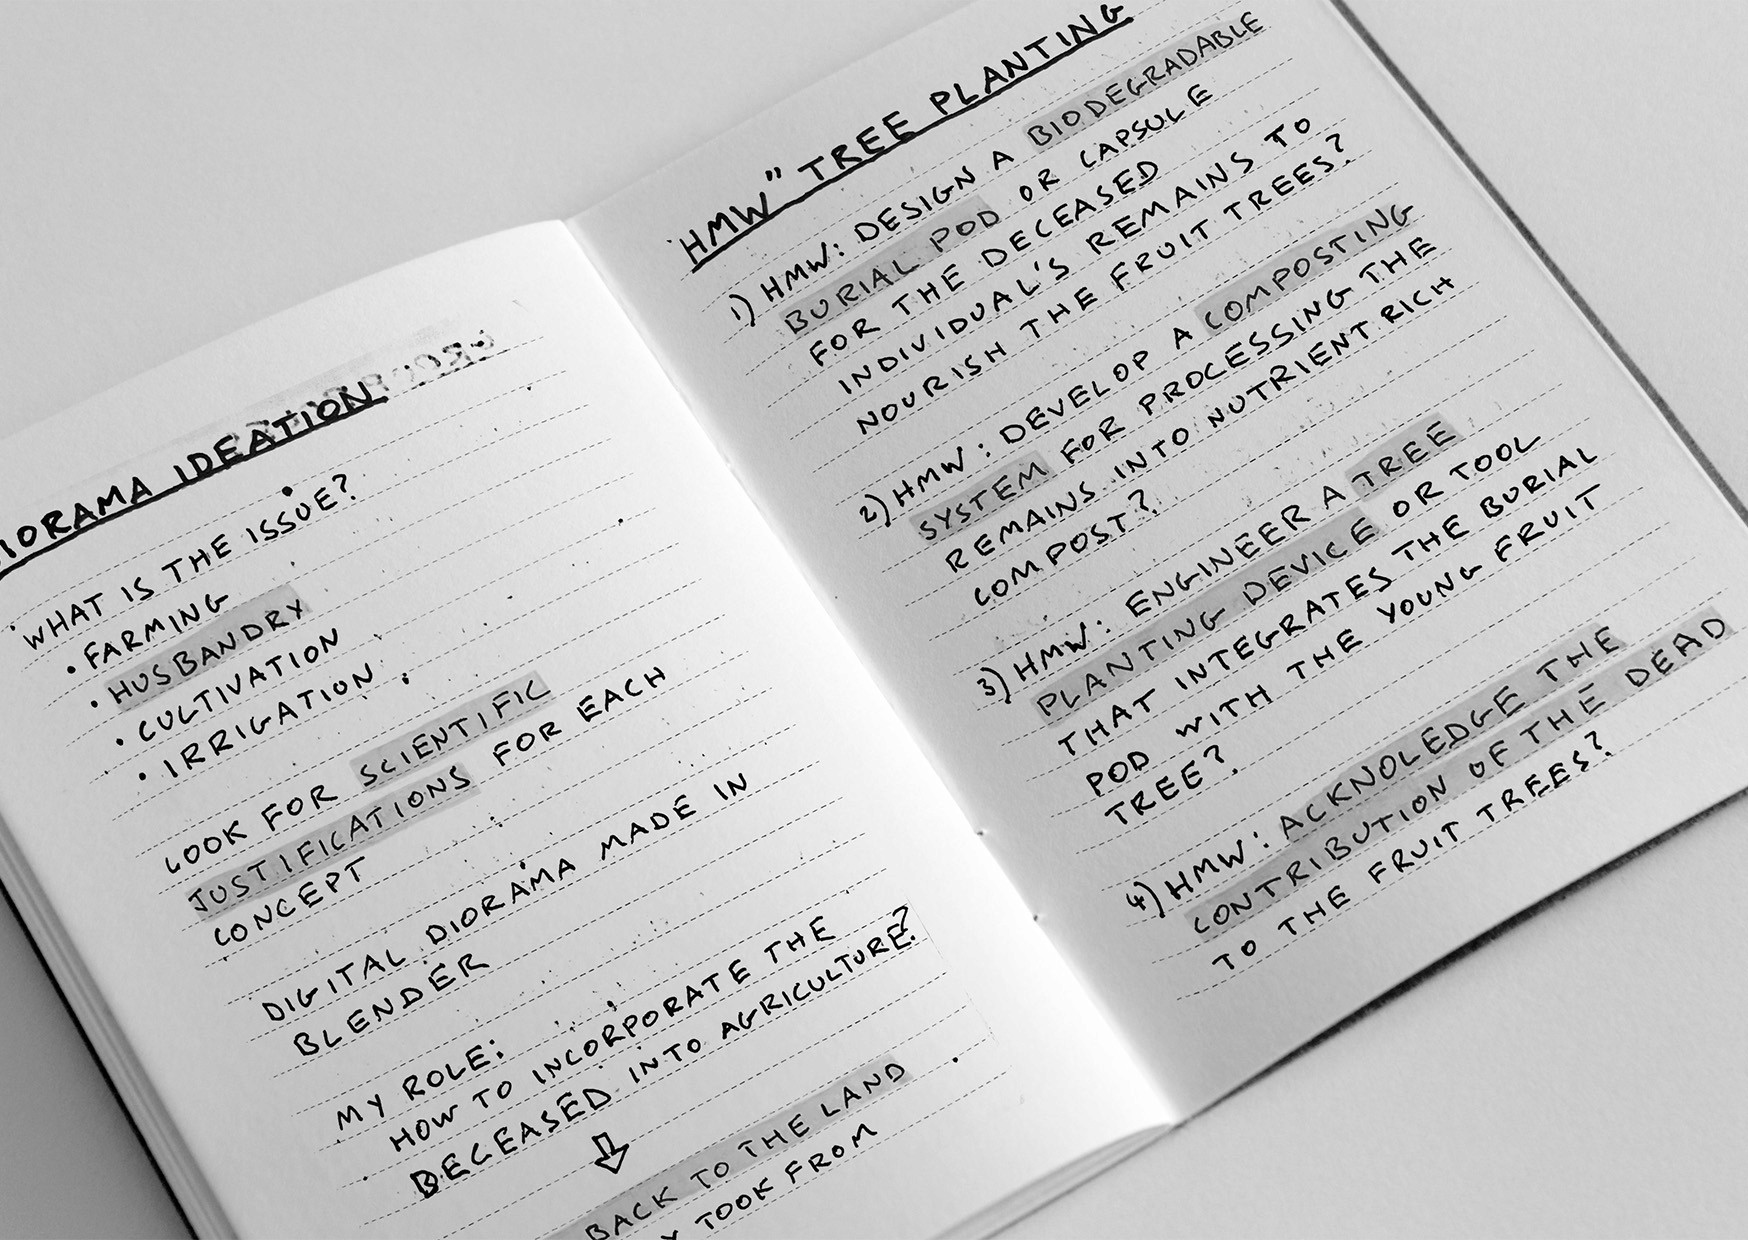 IORAMA IDEATION
WHAT IS THE ISSUE?
• FARMING
• HUSBANDRY
• CULTIVATION
• IRRIGATION
LOOK FOR SCIENTIFIC
JUSTIFICATIONS FOR EACH
CONCEPT
DIGITAL DIORAMA MADE IN
BLENDER
MY ROLE:
HOW TO INCORPORATE THE
DECEASED INTO AGRICULTURE?
BACK TO THE LAND
Y TOOK FROM
"HMW" TREE PLANTING
1) HMW: DESIGN A BIODEGRADABLE
BURIAL POD OR CAPSULE
FOR THE DECEASED
INDIVIDUAL'S REMAINS TO
NOURISH THE FRUIT TREES?
2) HMW: DEVELOP A COMPOSTING
SYSTEM FOR PROCESSING THE
REMAINS INTO NUTRIENT RICH
COMPOST?
3) HMW: ENGINEER A TREE
PLANTING DEVICE OR TOOL
THAT INTEGRATES THE BURIAL
POD WITH THE YOUNG FRUIT
TREE?
4) HMW: ACKNOLEDGE THE
CONTRIBUTION OF THE DEAD
TO THE FRUIT TREES?